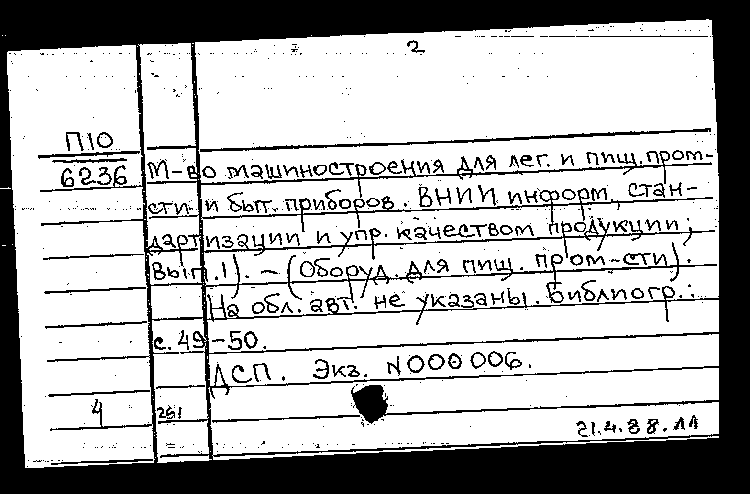 2
П10
6236
М-во машиностроения для лег. и пищ. пром-
сти и быт. приборов. ВНИИ информ., стан-
дартизации и упр. качеством продукции;
Вып. 1). – (Оборуд. для пищ. пром-сти).
На обл. авт. не указаны. Библиогр.:
с. 49-50.
ДСП. Экз. N000006.
4
251
21.4.88.11